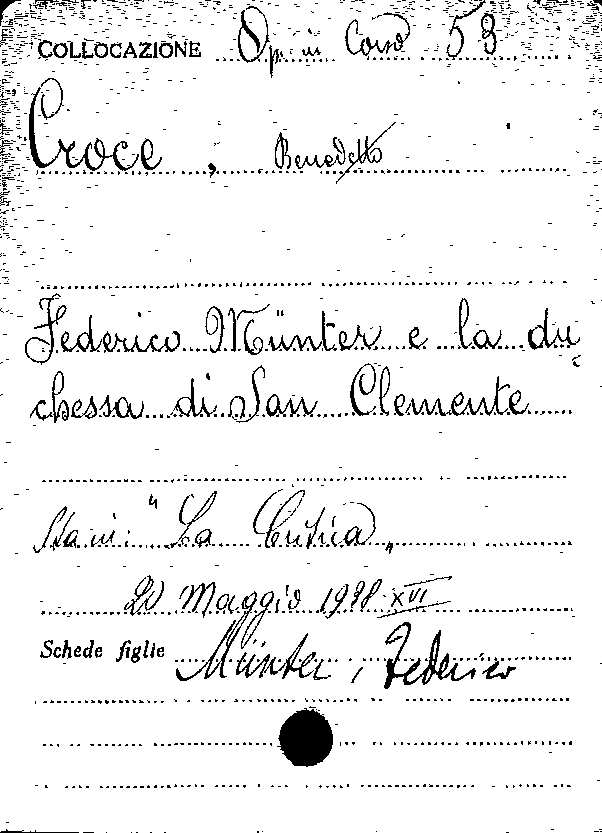 COLLOCAZIONE Op. in Corso 53
Croce, Benedetto
Federico Münter e la du-
chessa di San Clemente
Sta in: "La Critica"
20 Maggio 1938 XVI
Schede figlie Münter, Federico